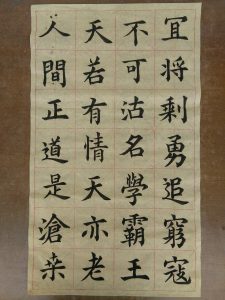 宜将剩勇追窮寇
不可沽名學霸王
天若有情天亦老
人間正道是滄桑